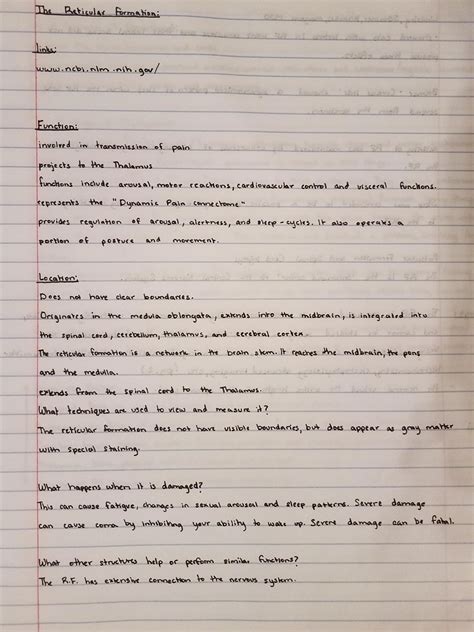 The Reticular Formation:
links:
www.ncbi.nlm.nih.gov/
Function:
involved in transmission of pain
projects to the Thalamus
functions include arousal, motor reactions, cardiovascular control and visceral functions.
represents the "Dynamic Pain Connectome"
provides regulation of arousal, alertness, and sleep-cycles. It also operates a
portion of posture and movement.
Location:
Does not have clear boundaries.
Originates in the medula oblongata, extends into the midbrain, is integrated into
the spinal cord, cerebellum, thalamus, and cerebral cortex.
The reticular formation is a network in the brain stem. It reaches the midbrain, the pons
and the medulla.
extends from the spinal cord to the Thalamus.
What techniques are used to view and measure it?
The reticular formation does not have visible boundaries, but does appear as gray matter
with special staining.
What happens when it is damaged?
This can cause fatigue, changes in sexual arousal and sleep patterns. Severe damage
can cause coma by inhibiting your ability to wake up. Severe damage can be fatal.
What other structures help or perform similar functions?
The R.F. has extensive connection to the nervous system.